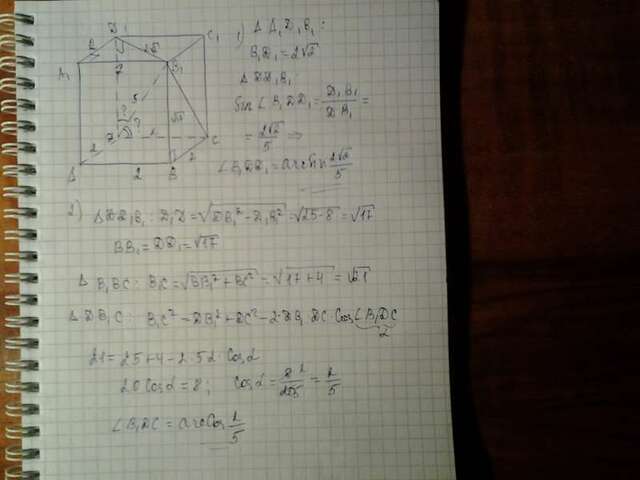 D₁ C₁ A₁ B₁ D C A B
2 2√2 5 √17 ? ? 2 2 2
1) Δ A₁D₁B₁:
B₁D₁ = 2√2
Δ DD₁B₁:
Sin ∠ B₁DD₁ = D₁B₁/DB₁ =
= 2√2/5 ⇒
∠B₁DD₁ = arcsin 2√2/5
2) Δ DD₁B₁: D₁D = √(DB₁² - D₁B₁²) = √(25-8) = √17
BB₁ = DD₁ = √17
Δ B₁BC: B₁C = √(BB₁² + BC²) = √(17+4) = √21
Δ DB₁C: B₁C² = DB₁² + DC² - 2·DB₁·DC·Cos ∠B₁DC
α
21 = 25+4-2·5·2·Cosα
20 Cosα = 8; Cosα = 8/20 = 2/5
∠B₁DC = arccos 2/5